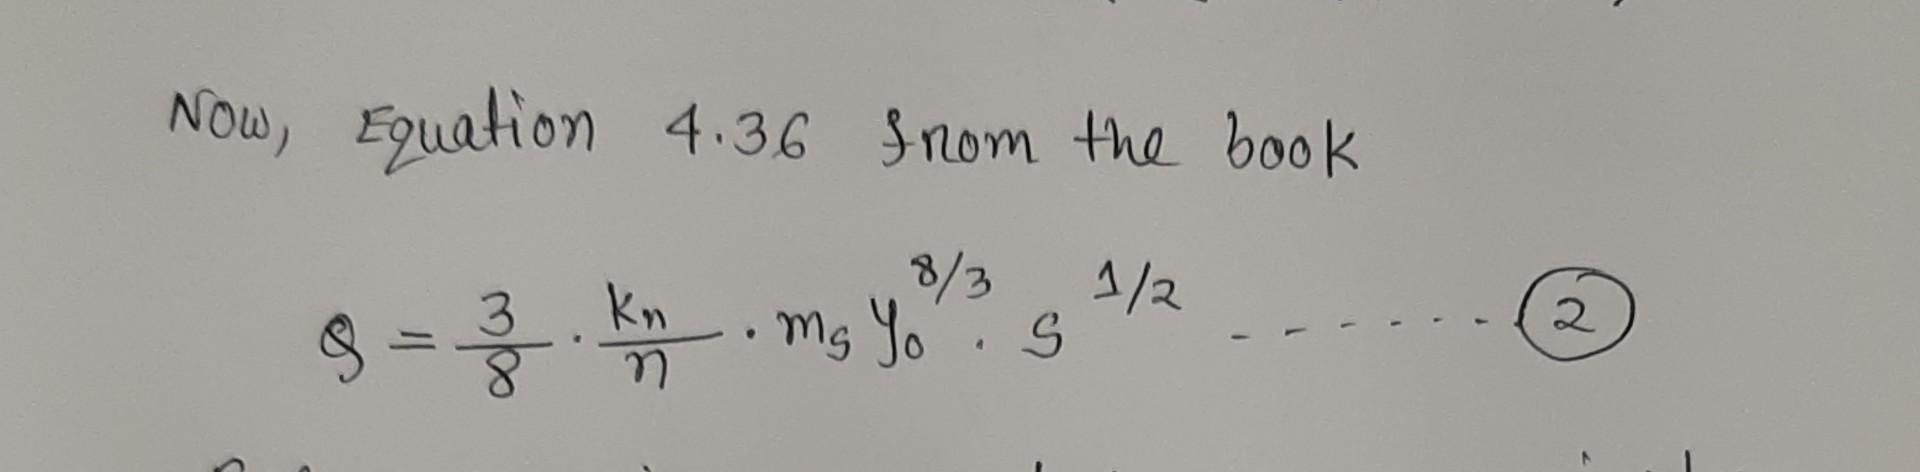 Now, Equation 4.36 from the book
Q = 3/8 · Kn/n · ms y0^8/3 · S^1/2 ------- (2)